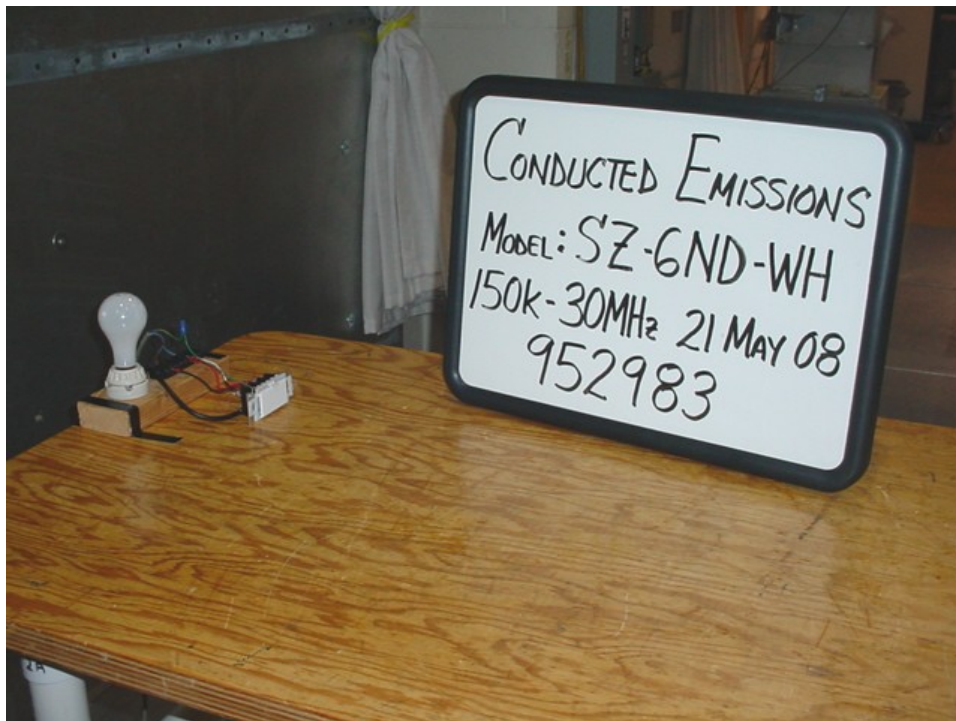 CONDUCTED EMISSIONS
MODEL: SZ-6ND-WH
150K-30MHz 21 MAY 08
952983
2A